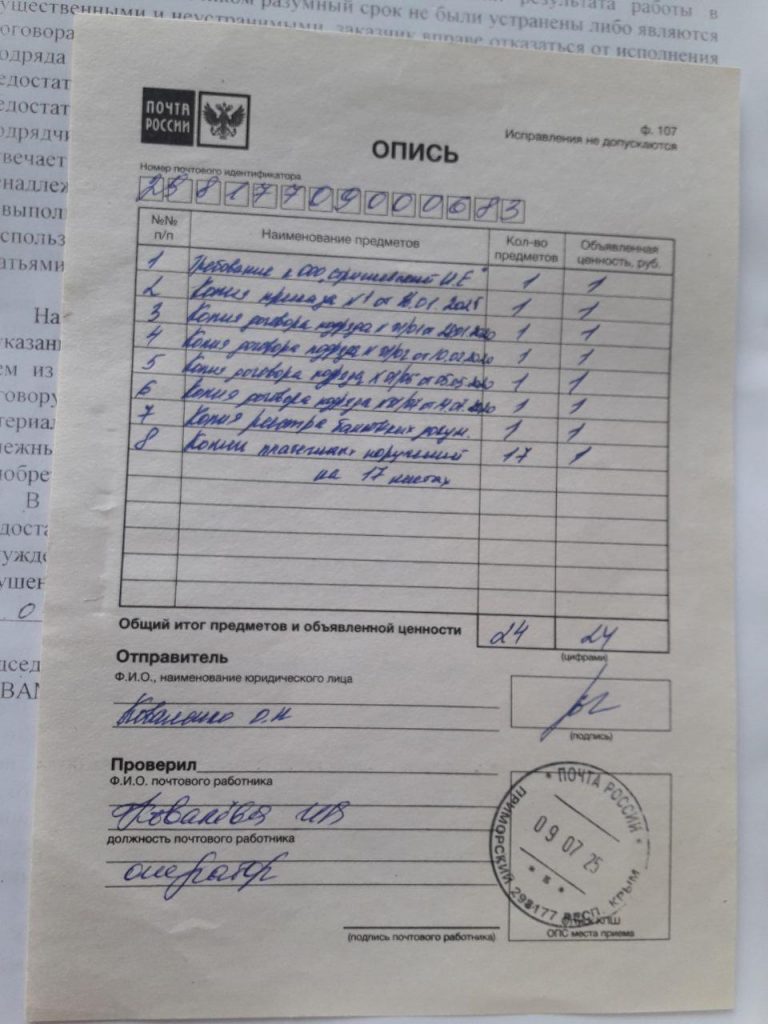 результата работы в
разумный срок не были устранены либо являются
существенными и неустранимыми, заказчик вправе отказаться от исполнения
ПОЧТА
РОССИИ
ф. 107
Исправления не допускаются
ОПИСЬ
Номер почтового идентификатора
29817709000683
№№ п/п Наименование предметов Кол-во предметов Объявленная ценность, руб.
1 Требование к ООО 1 1
2 Копия приказа №1 от 01 2025 1 1
3 Копия договора подряда № 01/01 от 20.01.2020 1 1
4 Копия договора подряда № 01/02 от 10.02.2020 1 1
5 Копия договора подряда № 01/05 от 05.05.2020 1 1
6 Копия договора подряда 1 1
7 Копия реестра банковских докум. 1 1
8 Копии платежных поручений 17 1
на 17 листах
Общий итог предметов и объявленной ценности 24 24
(цифрами)
Отправитель
Ф.И.О., наименование юридического лица
Коваленко О.Н
(подпись)
Проверил
Ф.И.О. почтового работника
Ковалёва
должность почтового работника
оператор
ПОЧТА РОССИИ
09 07 25
ПРИМОРСКИЙ 298177 РЕСП. КРЫМ
ОПС места приема
(подпись почтового работника)